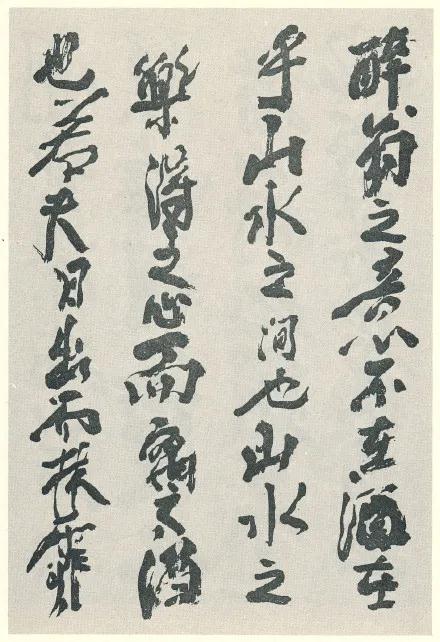 醉翁之意不在酒在
乎山水之间也山水之
樂得之心而寓之酒
也若夫日出而林霏